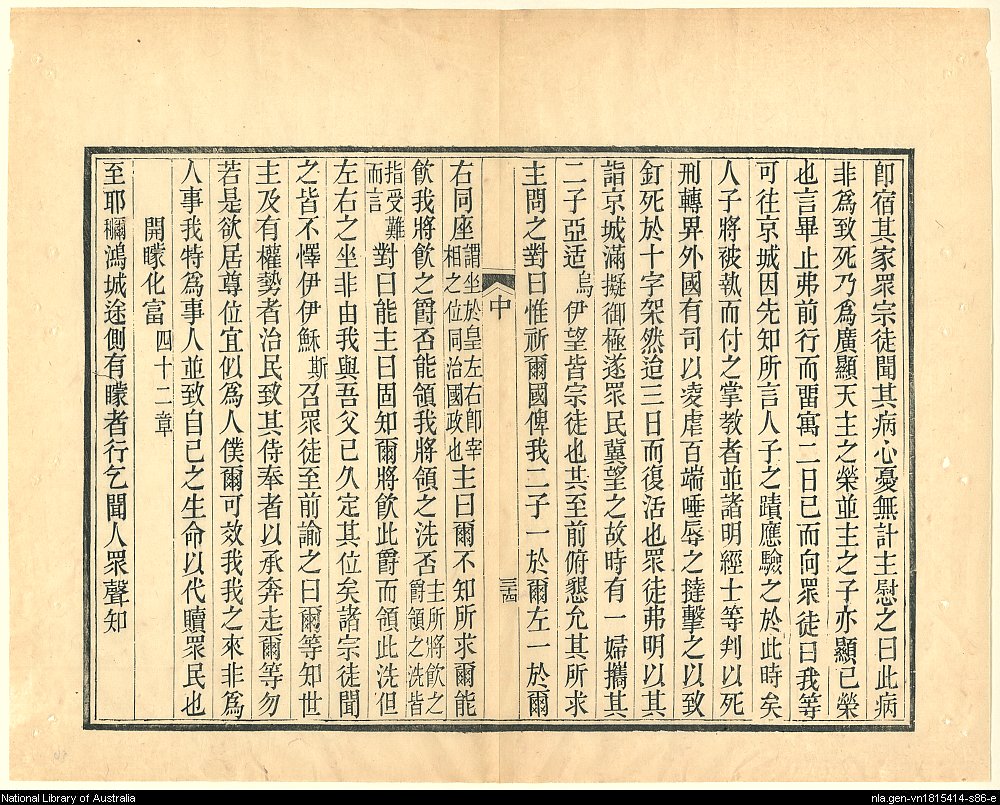 卽宿其家眾宗徒聞其病心憂無計主慰之曰此病
非爲致死乃爲廣顯天主之榮並主之子亦顯己榮
也言畢止弗前行而畱寓二日已而向眾徒曰我等
可往京城因先知所言人子之蹟應驗之於此時矣
人子將被執而付之掌教者並諸明經士等判以死
刑轉畀外國有司以凌虐百端唾辱之撻擊之以致
釘死於十字架然迨三日而復活也眾徒弗明以其
詣京城滿擬御極遂眾民冀望之故時有一婦攜其
二子亞适烏伊望皆宗徒也其至前俯懇允其所求
主問之對曰惟祈爾國俾我二子一於爾左一於爾
中
三十四
右同座謂坐於皇左右卽宰相之位同治國政也主曰爾不知所求爾能
飮我將飮之爵否能領我將領之洗否主所將飮之爵領之洗皆
指受難而言對曰能主曰固知爾將飮此爵而領此洗但
左右之坐非由我與吾父已久定其位矣諸宗徒聞
之皆不懌伊伊穌斯召眾徒至前諭之曰爾等知世
主及有權勢者治民致其侍奉者以承奔走爾等勿
若是欲居尊位宜似爲人僕爾可效我我之來非爲
人事我特爲事人並致自己之生命以代贖眾民也
開矇化富四十二章
至耶禰鴻城途側有矇者行乞聞人眾聲知
National Library of Australia
nla.gen-vn1815414-s86-e